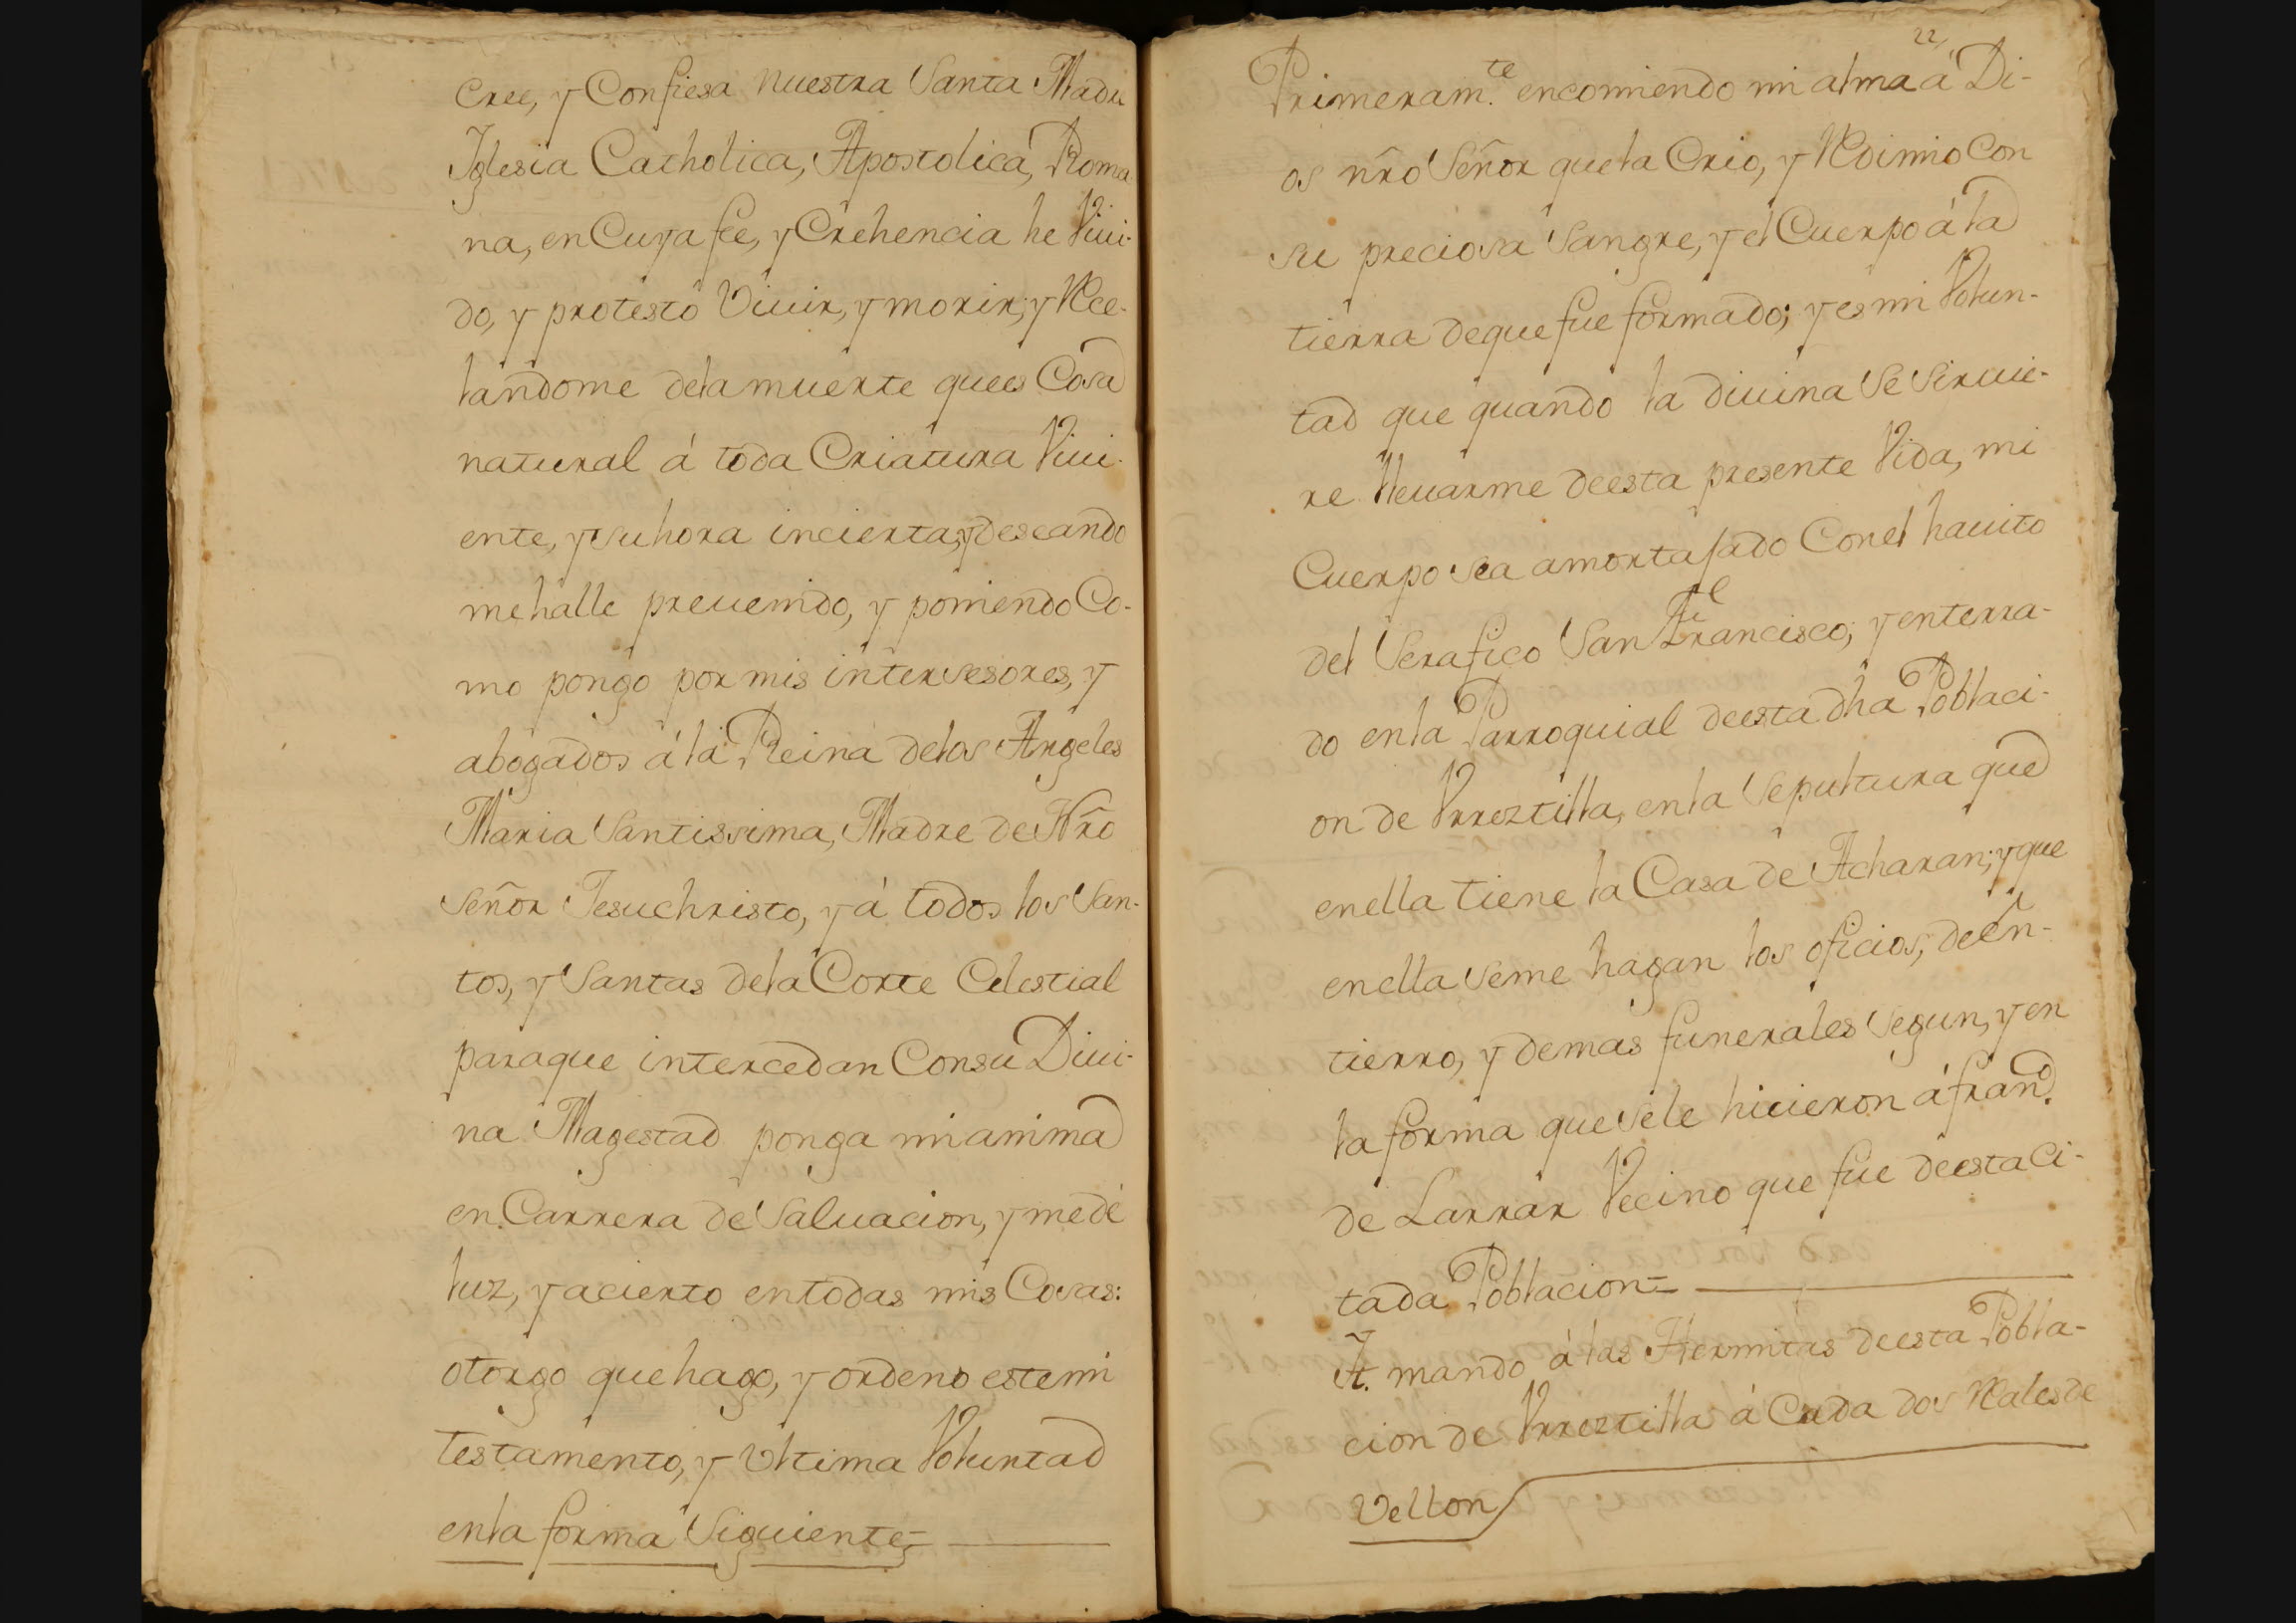 cree, y Confiesa nuestra Santa Madre
Iglesia Catholica, Apostolica, Roma
na, en Cuya fee, y Crehencia he Viui-
do, y protesto Viuir, y morir; y Rece-
landome dela muerte que es Cosa
natural á toda Criatura Viui-
ente, y su hora incierta, y deseando
me halle preuenido, y poniendo Co-
mo pongo por mis intersesores, y
abogados á la Reina delos Angeles
Maria Santissima, Madre de Nr̃o
Señor Jesuchristo, y á todos los San-
tos, y Santas dela Corte Celestial
paraque intercedan Consu Diui-
na Magestad ponga mi anima
en Carrera de Saluacion, y me dé
luz, y acierto entodas mis Cosas:
otorgo que hago, y ordeno este mi
testamento, y Vltima Voluntad
enla forma Siguiente=
22
Primeram.te encomiendo mi alma á Di-
os nr̃o Señor que la Crio, y Redimio Con
su preciosa Sangre, y el Cuerpo á la
tierra de que fue formado; y es mi Volun-
tad que quando la diuina Se Siruie-
re lleuarme deesta presente Vida, mi
Cuerpo sea amortajado Con el hauito
del Serafico San Francisco; y enterra-
do enla Parroquial deesta dha Poblaci-
on de Vrreztilla, enla Sepultura que
enella tiene la Casa de Acharan; y que
enella Seme hagan los oficios, de en-
tierro, y demas funerales Segun, y en
la forma que Sele hicieron á fran.co
de Larrar Vecino que fue deesta Ci-
tada Poblacion=
It. mando á las Hermitas deesta Pobla-
cion de Vrreztilla á Cada dos Reales de
Vellon